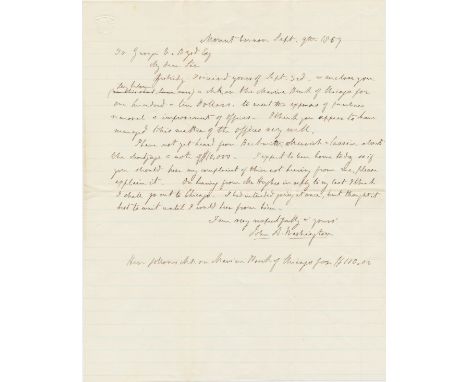 Mount Vernon Sept. 9th 1857
To George
My dear Sir
yesterday received yours of Sept. 3rd, & enclose you
a check on the Marine Bank of Chicago for
one hundred & ten Dollars. to meet the expenses of
removal & improvement of offices. I think you appear to have
managed this matter of the offices very well.
I have not yet heard from about
the & note of $10,000. I expect to
you should hear any complaint of their not hearing from me, Please
explain it. On hearing from Mr Hughes in reply to my last I think
I shall go out to Chicago. I had intended going at once, but thought it
best to wait until I could hear from him.
I am very respectfully & yours
John A. Washington
Here follows check on Marine Bank of Chicago for $110.00